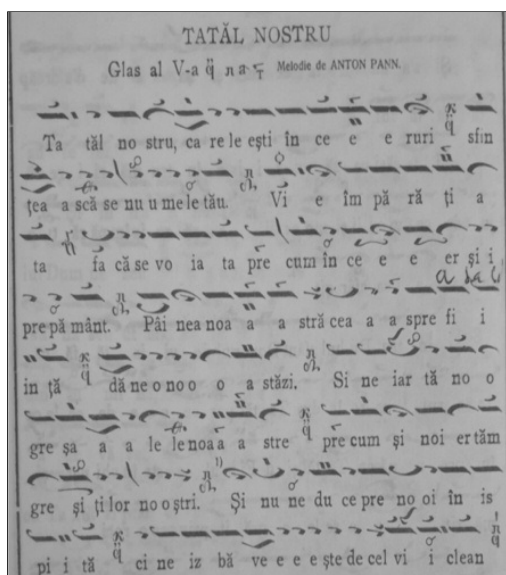 TATĂL NOSTRU
Glas al V-a Melodie de ANTON PANN.
Ta tăl no stru, ca re le ești în ce e e ruri sfin
țea a scă se nu u me le tău. Vi e îm pă ră ți a
ta fa că se vo ia ta pre cum în ce e e er și i
pre pă mânt. Pâi nea noa a a stră cea a a spre fi i
in ță dă ne o no o o a stăzi. Si ne iar tă no o
gre șa a a le le noa a a stre pre cum și noi er tăm
gre și ți lor no o ștri. Și nu ne du ce pre no oi în is
pi i tă ci ne iz bă ve e e ește de cel vi i clean